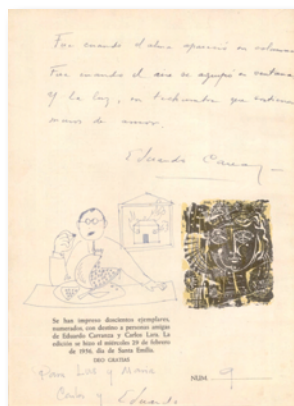 Fue cuando el alma apareció en columnas
Fue cuando el aire se agrupó en ventanas
Y la luz, en
manos de amor.
Eduardo Carranza
Se han impreso doscientos ejemplares,
numerados, con destino a personas amigas
de Eduardo Carranza y Carlos Lara. La
edición se hizo el miércoles 29 de febrero
de 1956, día de Santa Emilia.
DEO GRATIAS
Para Luz y María
NUM. 9
Carlos y Eduardo